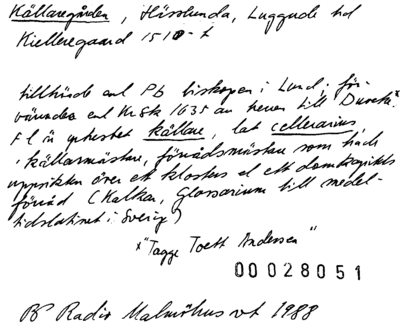 Källaregården, Hässlunda, Luggude hd
Kielleregaard 1510-t
tillhörde enl PB biskopen i Lund; för-
värvades enl KrSk 1635 av herren till Duveke*
F l är yrkesbet källare, lat cellerarius,
'källarmästare, förrådsmästare som hade
uppsikten över ett klosters el ett domkapitels
förråd (Kalkar, Glossarium till medel-
tidslatinet i Sverige)
x "Tagge Tott Andersen"
00028051
PB Radio Malmöhus vt 1988